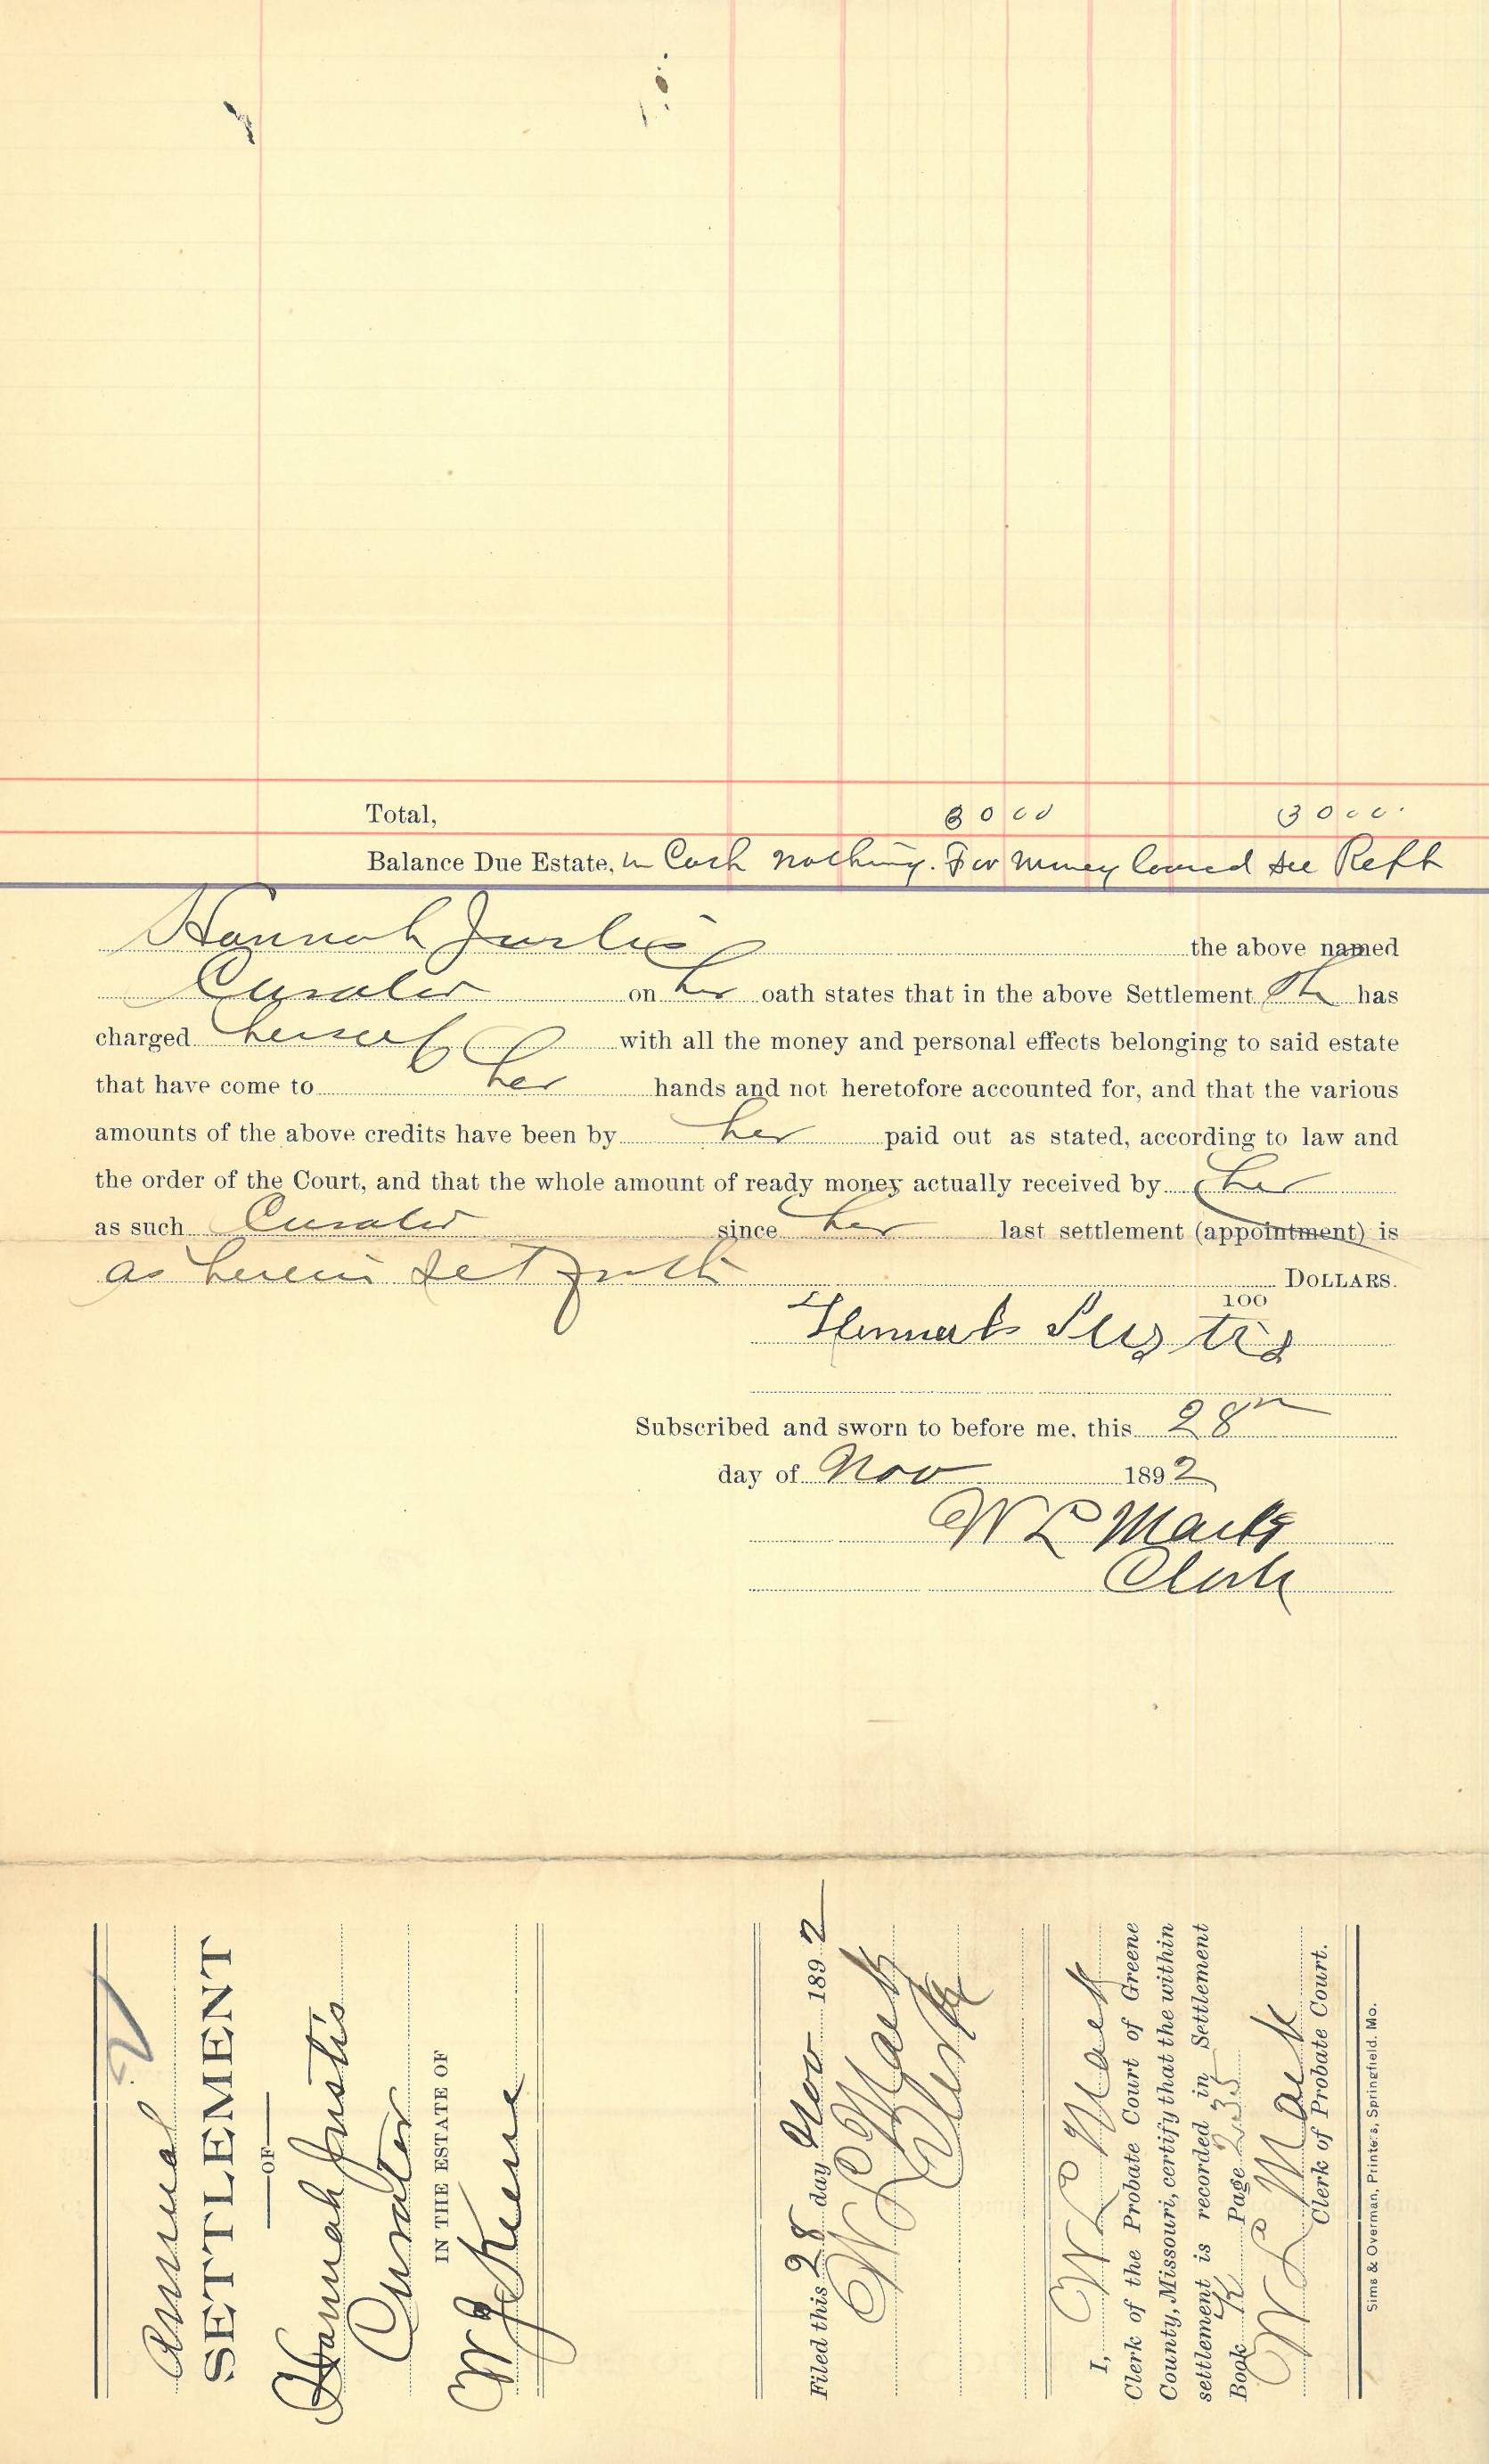 Total, 80 00 80 00
Balance Due Estate, in Cash nothing. For money loaned see Rept
Hannah Justis the above named
Curator on her oath states that in the above Settlement She has
charged herself with all the money and personal effects belonging to said estate
that have come to her hands and not heretofore accounted for, and that the various
amounts of the above credits have been by her paid out as stated, according to law and
the order of the Court, and that the whole amount of ready money actually received by her
as such Curator since her last settlement (appointment) is
as herein set forth DOLLARS.
100
Hannah Justis
Subscribed and sworn to before me, this 28th
day of Nov 1892
W L Mack
Clerk
Annual
SETTLEMENT
OF
Hannah Justis
Curator
IN THE ESTATE OF
Keene
Filed this 28 day Nov 1892
W L Mack
Clerk
I, W L Mack
Clerk of the Probate Court of Greene
County, Missouri, certify that the within
settlement is recorded in Settlement
Book K Page 235
W L Mack
Clerk of Probate Court.
Sims & Overman, Printers, Springfield, Mo.